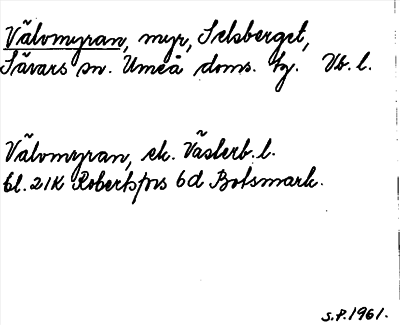 Välvomyran, myr, Selsberget,
Sävars sn. Umeå doms. tg. Vb. l.
Välvomyran, ek. Västerb. l.
bl. 21K Robertsfors 6d Botsmark.
S.P. 1961.